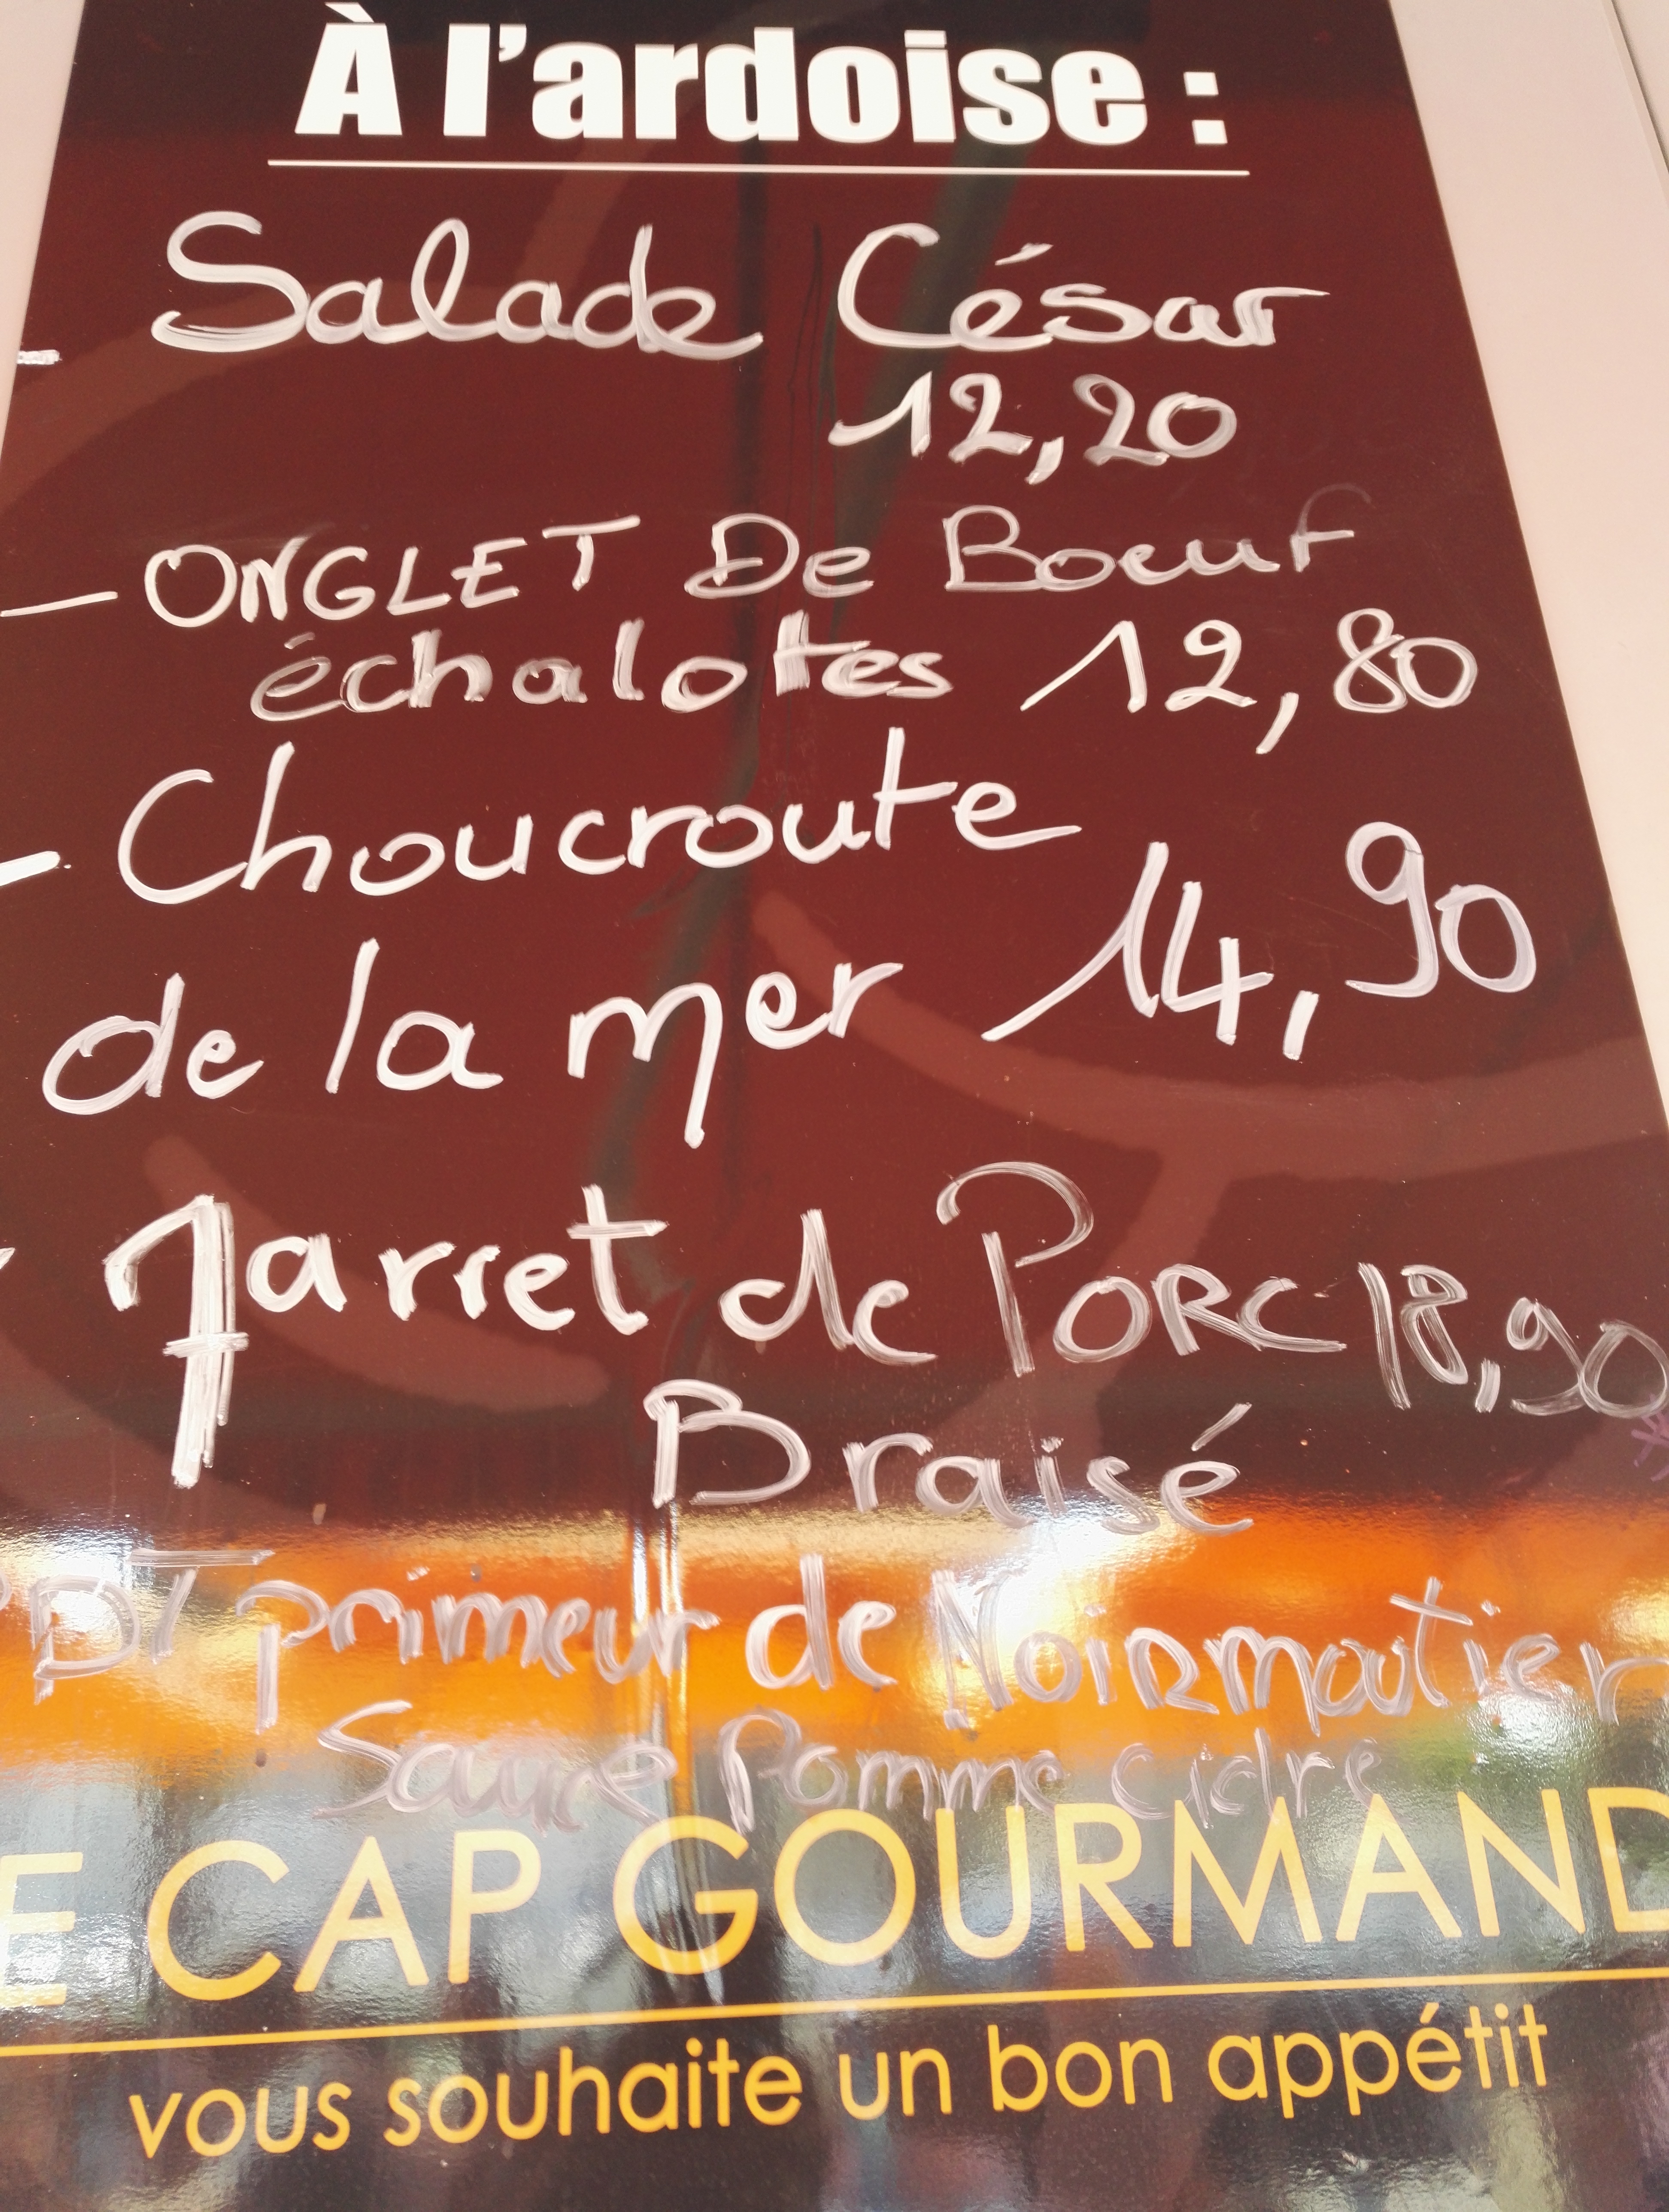 À l'ardoise :
- Salade César
12,20
- ONGLET De Boeuf
échalotes 12,80
- Choucroute
de la mer 14,90
- Jarret de PORC 18,90
Braisé
PDT primeur de Noirmoutier
Sauce Pomme cidre
E CAP GOURMAND
vous souhaite un bon appétit